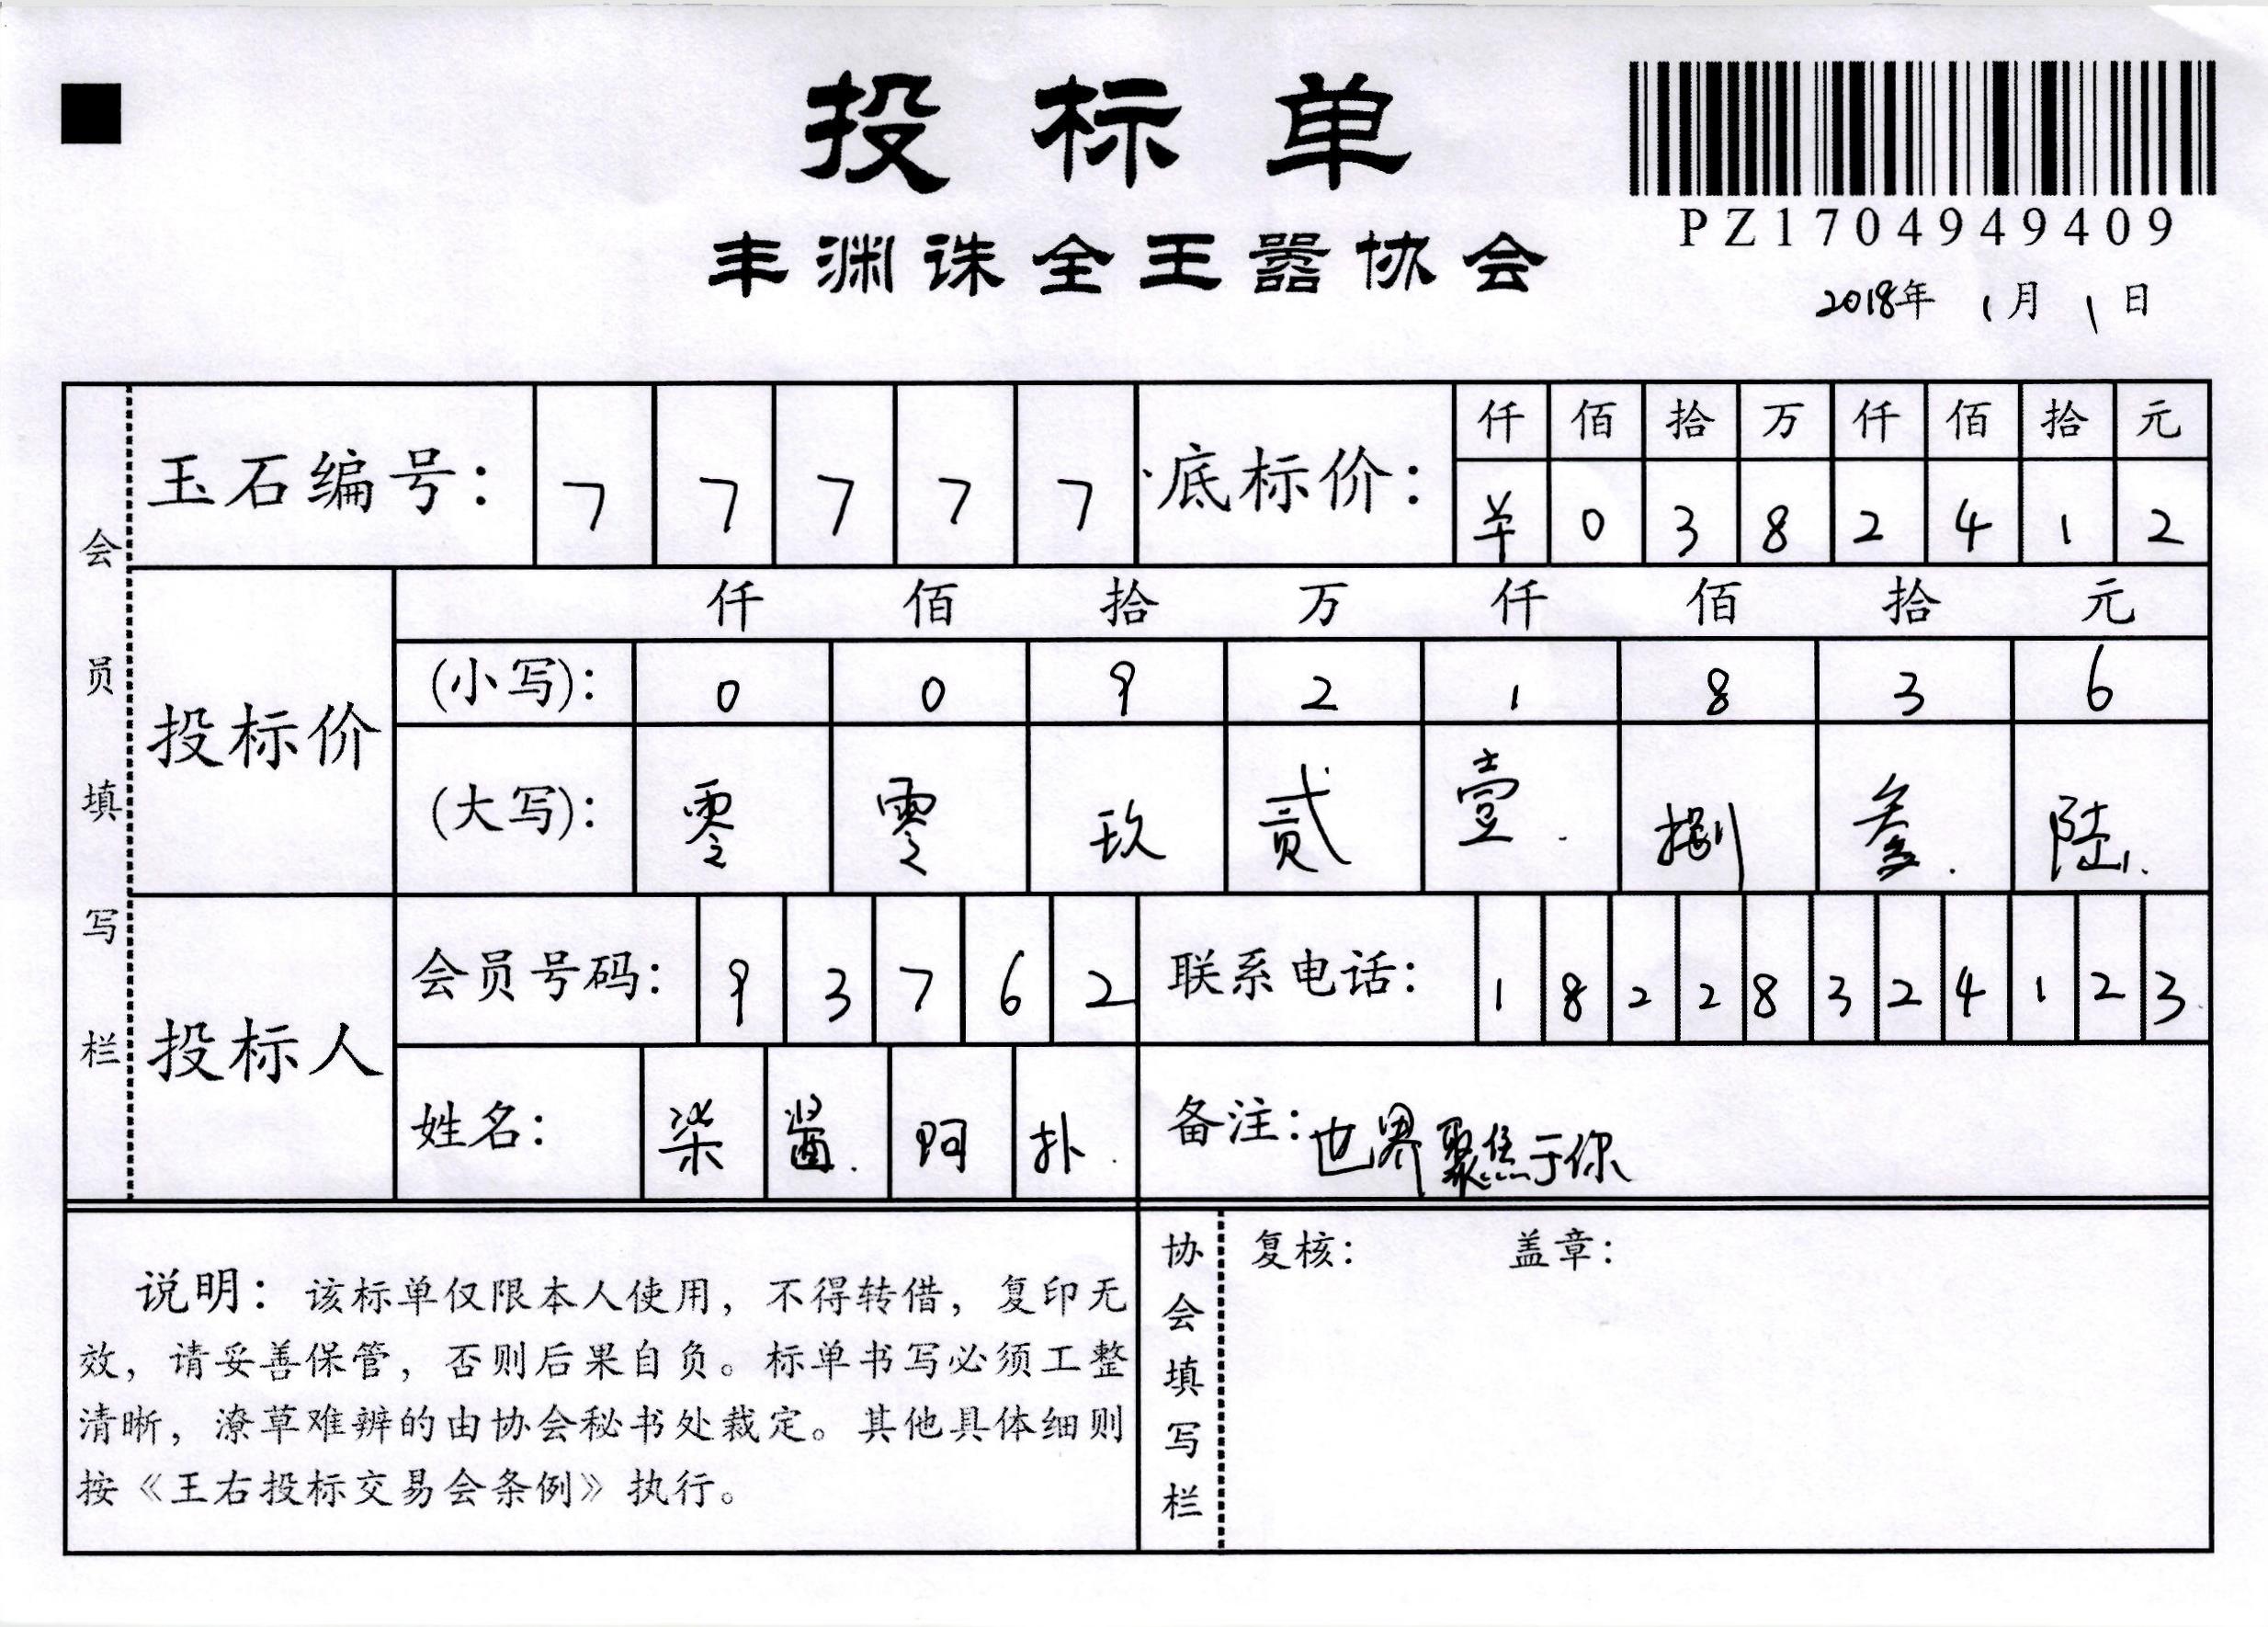 投标单
PZ1704949409
丰渊诛全王嚣协会
2018年 1月 1日
会员填写栏
玉石编号: 7 7 7 7 7 底标价: 仟 佰 拾 万 仟 佰 拾 元
0 3 8 2 4 1 2
投标价 仟 佰 拾 万 仟 佰 拾 元
(小写): 0 0 9 2 1 8 3 6
(大写): 零 零 玖 贰 壹 捌 叁 陆
投标人 会员号码: 9 3 7 6 2 联系电话: 1 8 2 2 8 3 2 4 1 2 3
姓名: 柒 阿 扑 备注: 世界聚焦于你
说明: 该标单仅限本人使用, 不得转借, 复印无
效, 请妥善保管, 否则后果自负。标单书写必须工整
清晰, 潦草难辨的由协会秘书处裁定。其他具体细则
按《王右投标交易会条例》执行。
协会填写栏
复核: 盖章: